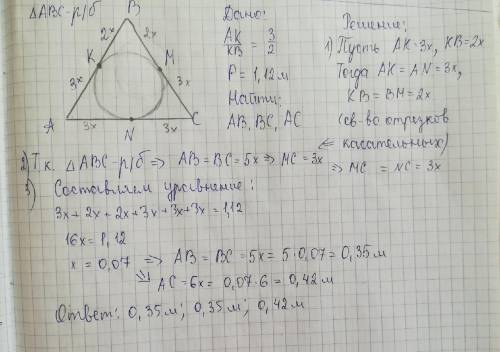 ΔABC-р/б
B
2x
2x
K
M
3x
3x
A
3x
N
3x
C
Дано:
AK/KB = 3/2
P = 1,12 м
Найти:
AB, BC, AC
Решение:
1) Пусть AK=3x, KB=2x
Тогда AK = AN = 3x,
KB = BM = 2x
(св-во отрезков
касательных)
2) Т.к. ΔABC-р/б => AB = BC = 5x => MC = 3x
=> MC = NC = 3x
3) Составляем уравнение:
3x + 2x + 2x + 3x + 3x + 3x = 1,12
16x = 1,12
x = 0,07 => AB = BC = 5x = 5·0,07 = 0,35 м
=> AC = 6x = 0,07·6 = 0,42 м
Ответ: 0,35 м; 0,35 м; 0,42 м